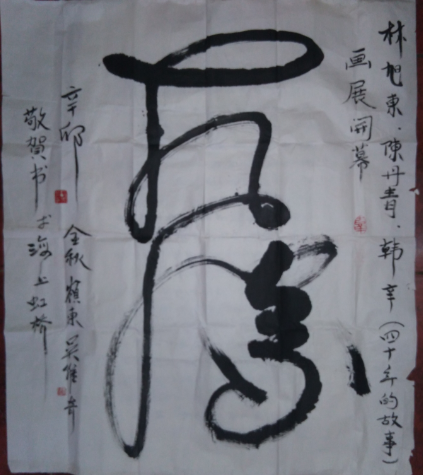 林旭東·陳丹青·韩辛(四十年的故事)
画展開幕
騰
辛卯金秋嶺東吴
敬賀书于海上虹橋